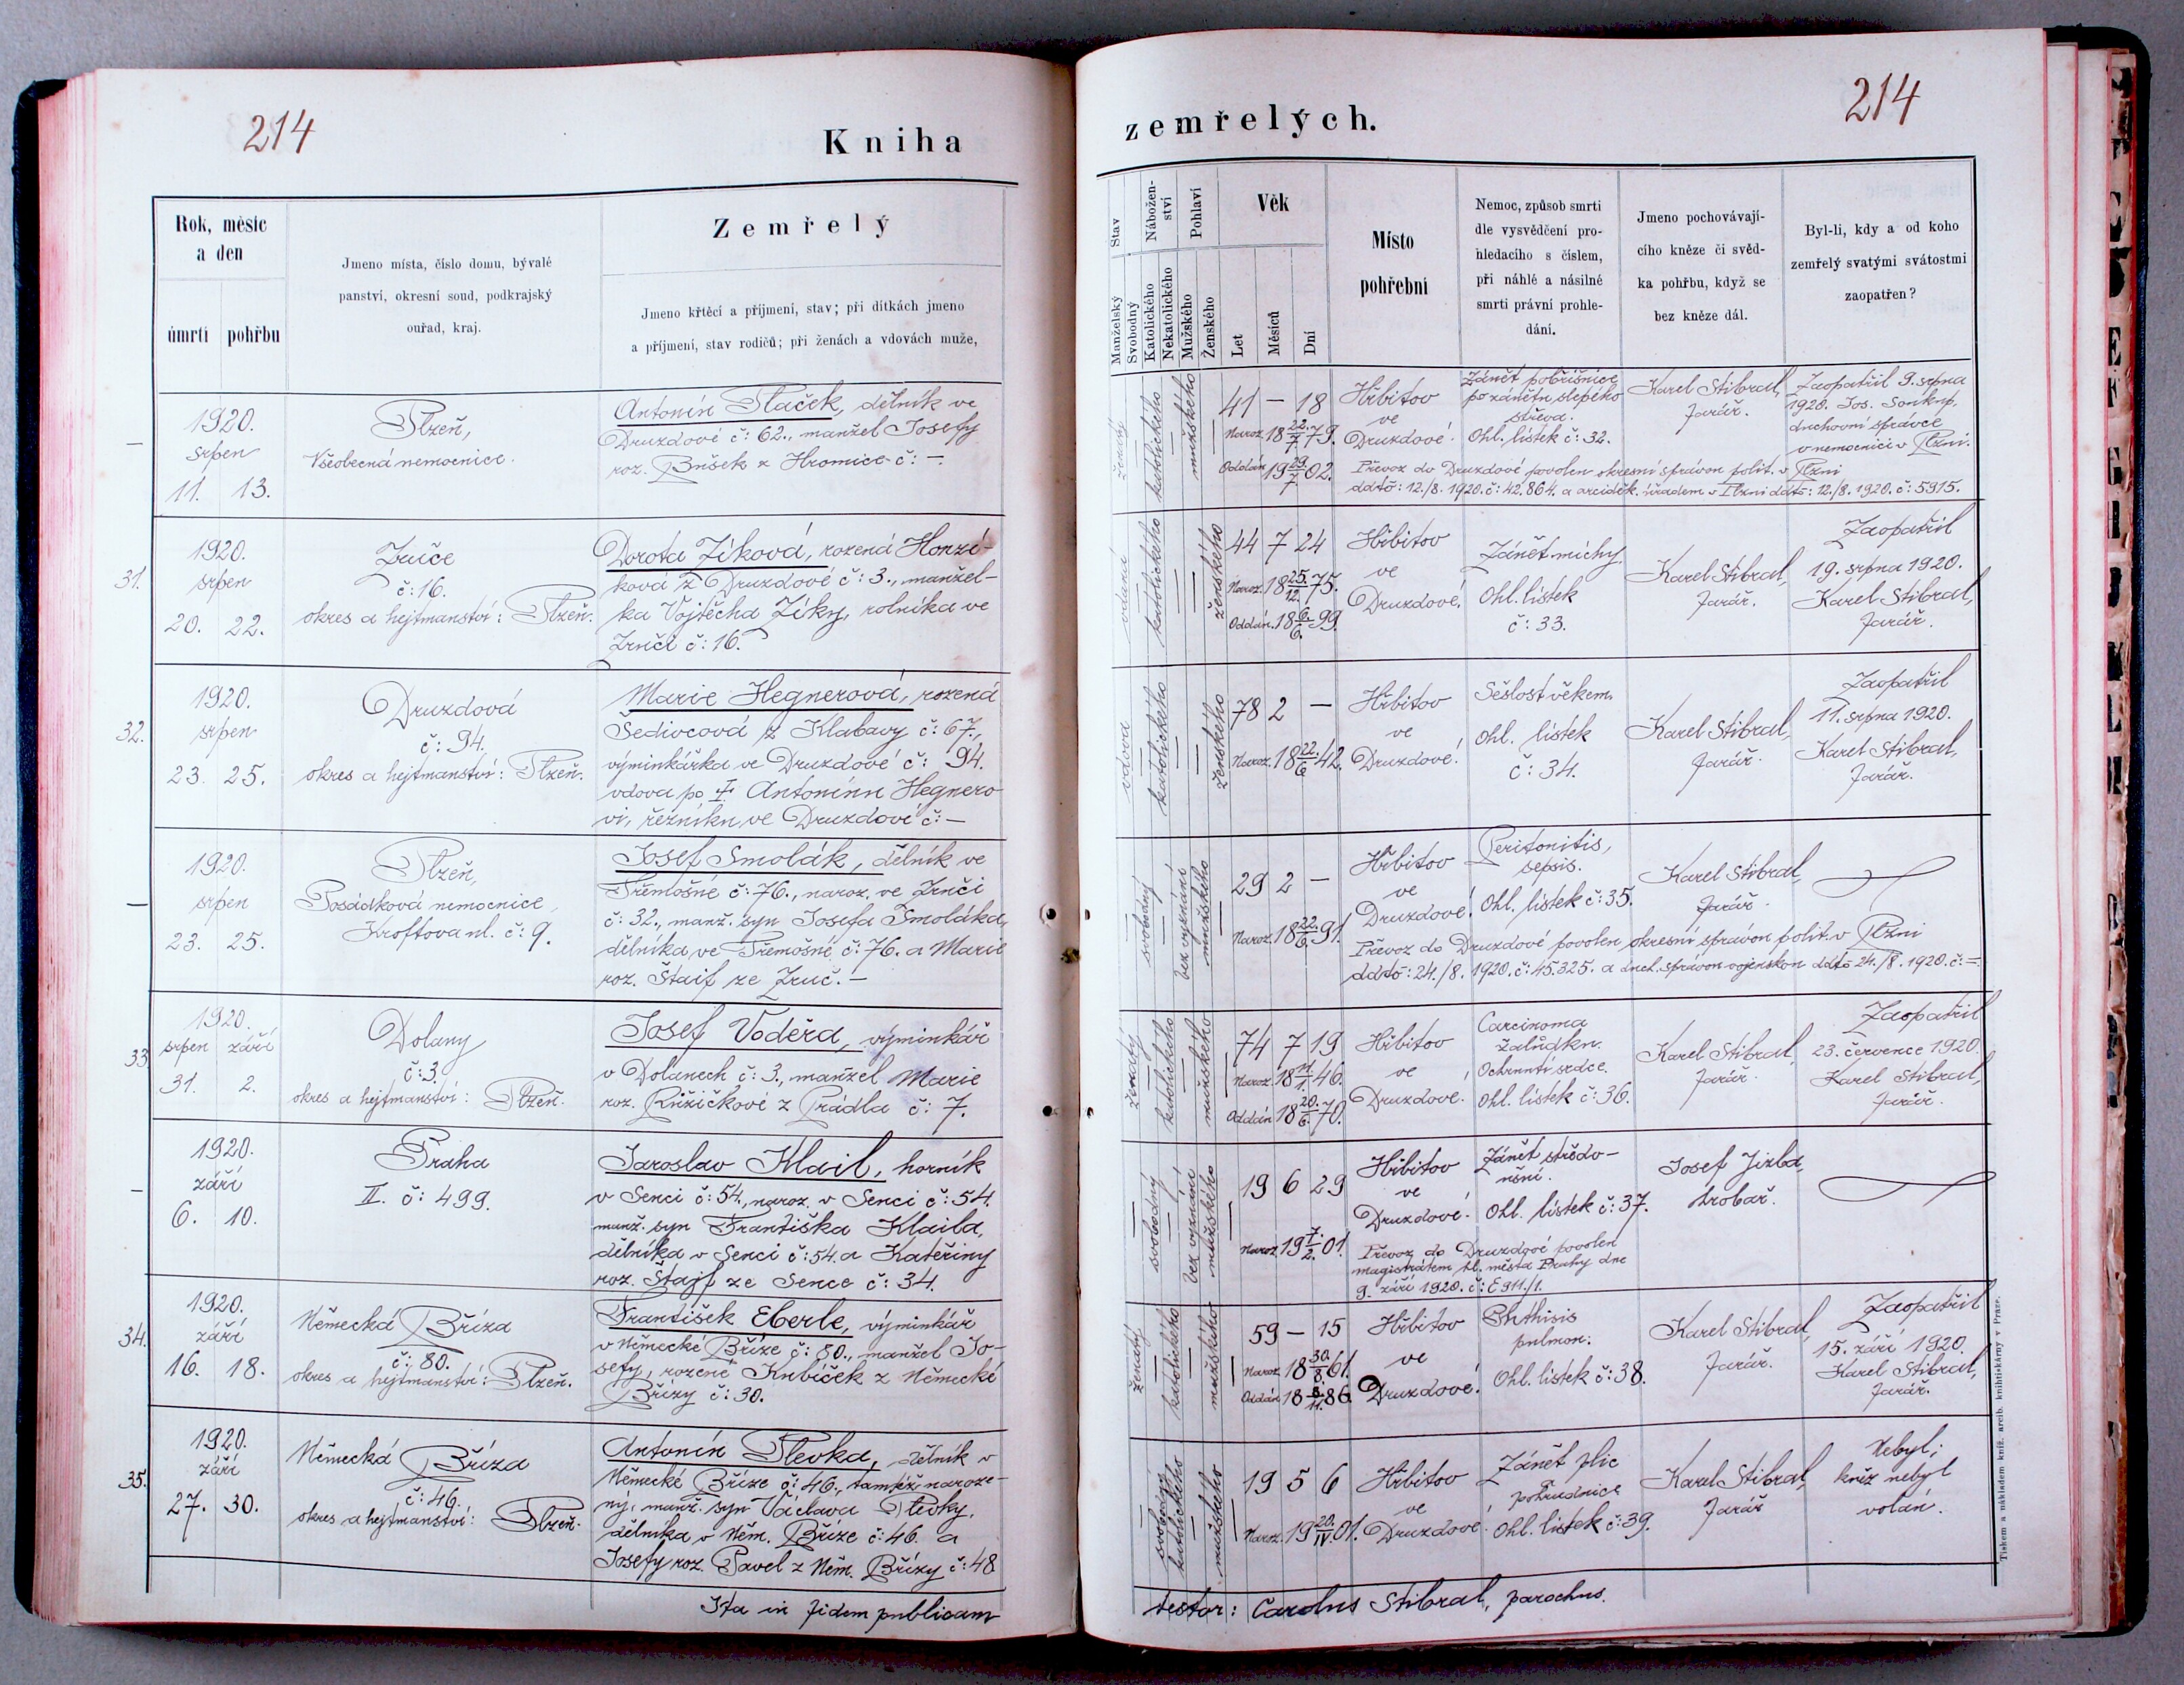 214
Kniha
Rok, měsíc
a den
úmrtí pohřbu
Jmeno místa, číslo domu, bývalé
panství, okresní soud, podkrajský
ouřad, kraj.
Zemřelý
Jmeno křtěcí a příjmení, stav; při dítkách jmeno
a příjmení, stav rodičů; při ženách a vdovách muže,
—
1920.
srpen
11. 13.
Plzeň,
Všeobecná nemocnice.
Antonín Ptaček, dělník ve
Druzdové č: 62., manžel Josefy
roz. Bušek z Hromice č: —.
31.
1920.
srpen
20. 22.
Zruče
č: 16.
okres a hejtmanství: Plzeň.
Dorota Zíková, rozená Honzí-
ková z Druzdové č: 3., manžel-
ka Vojtěcha Zíky, rolníka ve
Zruči č: 16.
32.
1920.
srpen
23. 25.
Druzdová
č: 94.
okres a hejtmanství: Plzeň.
Marie Hegnerová, rozená
Šedivcová z Klabavy č: 67.,
výminkářka ve Druzdové č: 94.
vdova po † Antonínu Hegnero-
vi, řezníku ve Druzdové č: —
—
1920.
srpen
23. 25.
Plzeň,
Posádková nemocnice,
Kroftova ul. č: 9.
Josef Smolák, dělník ve
Třemošné č: 76., naroz. ve Zruči
č: 32., manž. syn Josefa Smoláka,
dělníka ve Třemošné č: 76. a Marie
roz. Štaif ze Zruč. —
33
1920.
srpen září
31. 2.
Dolany
č: 3.
okres a hejtmanství: Plzeň.
Josef Voděra, výminkář
v Dolanech č: 3., manžel Marie
roz. Růžičkové z Prádla č: 7.
—
1920.
září
6. 10.
Praha
II. č: 499.
Jaroslav Klail, horník
v Senci č: 54., naroz. v Senci č: 54.
manž. syn Františka Klaila,
dělníka v Senci č: 54. a Kateřiny
roz. Štajf ze Sence č: 34.
34.
1920.
září
16. 18.
Německá Bříza
č: 80.
okres a hejtmanství: Plzeň.
František Eberle, výminkář
v Německé Bříze č: 80., manžel Jo-
sefy, rozené Kubíček z Německé
Břízy č: 30.
35.
1920.
září
27. 30.
Německá Bříza
č: 46.
okres a hejtmanství: Plzeň.
Antonín Plevka, dělník v
Německé Bříze č: 46., tamtéž naroze-
ný, manž. syn Václava Plevky,
dělníka v Něm. Bříze č: 46. a
Josefy roz. Pavel z Něm. Břízy č: 48
Ita in fidem publicam
214
zemřelých.
Stav
Manželský
Svobodný
Nábožen-
ství
Katolického
Nekatolického
Pohlaví
Mužského
Ženského
Věk
Let
Měsíců
Dní
Místo
pohřební
Nemoc, způsob smrti
dle vysvědčení pro-
hledacího s číslem,
při náhlé a násilné
smrti právní prohle-
dání.
Jmeno pochovávají-
cího kněze či svěd-
ka pohřbu, když se
bez kněze dál.
Byl-li, kdy a od koho
zemřelý svatými svátostmi
zaopatřen?
ženatý
katolického
mužského
41 — 18
Naroz. 18 22./7 79.
Oddán 19 29/7 02.
Hřbitov
ve
Druzdové.
Zánět pobřišnice
po zánětu slepého
střeva.
Ohl. lístek č: 32.
Karel Stibral,
farář.
Zaopatřil 9. srpna
1920. Jos. Soukup,
duchovní správce
v nemocnici v Plzni.
Převoz do Druzdové povolen okresní správou polit. v Plzni
ddto: 12./8. 1920. č: 42.864. a arciděk. úřadem v Plzni ddto: 12./8. 1920. č: 5915.
vdaná
katolického
ženského
44 7 24
Naroz. 18 25./12. 75.
Oddán. 18 6./6. 99.
Hřbitov
ve
Druzdové.
Zánět míchy
Ohl. lístek
č: 33.
Karel Stibral,
farář.
Zaopatřil
19. srpna 1920.
Karel Stibral,
farář.
vdova
katolického
ženského
78 2 —
Naroz. 18 22./6 42.
Hřbitov
ve
Druzdové.
Sešlost věkem.
Ohl. lístek
č: 34.
Karel Stibral,
farář.
Zaopatřil
11. srpna 1920.
Karel Stibral,
farář.
svobodný
bez vyznání
mužského
29 2 —
Naroz. 18 22./6. 91.
Hřbitov
ve
Druzdové.
Peritonitis,
sepsis.
Ohl. lístek č: 35.
Karel Stibral,
farář.
Převoz do Druzdové povolen okresní správou polit. v Plzni
ddto: 24./8. 1920. č: 45.325. a duch. správou vojenskou ddto 24./8. 1920. č: =
ženatý
katolického
mužského
74 7 19
Naroz. 18 11/1. 46.
Oddán 18 20./6. 70.
Hřbitov
ve
Druzdové.
Carcinoma
žaludku.
Ochrnutí srdce.
Ohl. lístek č: 36.
Karel Stibral,
farář.
Zaopatřil
23. července 1920.
Karel Stibral,
farář.
svobodný
bez vyznání
mužského
19 6 29
Naroz. 19 7./2. 01.
Hřbitov
ve
Druzdové.
Zánět středo-
ušní.
Ohl. lístek č: 37.
Josef Jizba,
hrobař.
Převoz do Druzdové povolen
magistrátem hl. města Prahy dne
9. září 1920. č: E 911./1.
ženatý
katolického
mužského
59 — 15
Naroz. 18 30./8. 61.
Oddán 18 8./11. 86.
Hřbitov
ve
Druzdové.
Phthisis
pulmon.
Ohl. lístek č: 38.
Karel Stibral,
farář.
Zaopatřil
15. září 1920.
Karel Stibral,
farář.
svobodný
katolického
mužského
19 5 6
Naroz. 19 20./IV. 01.
Hřbitov
ve
Druzdové.
Zánět plic
pohrudnice
Ohl. lístek č: 39.
Karel Stibral,
farář
Nebyl;
kněz nebyl
volán.
testor: Carolus Stibral, parochus.
Tiskem a nákladem kníž. arcib. knihtiskárny v Praze.